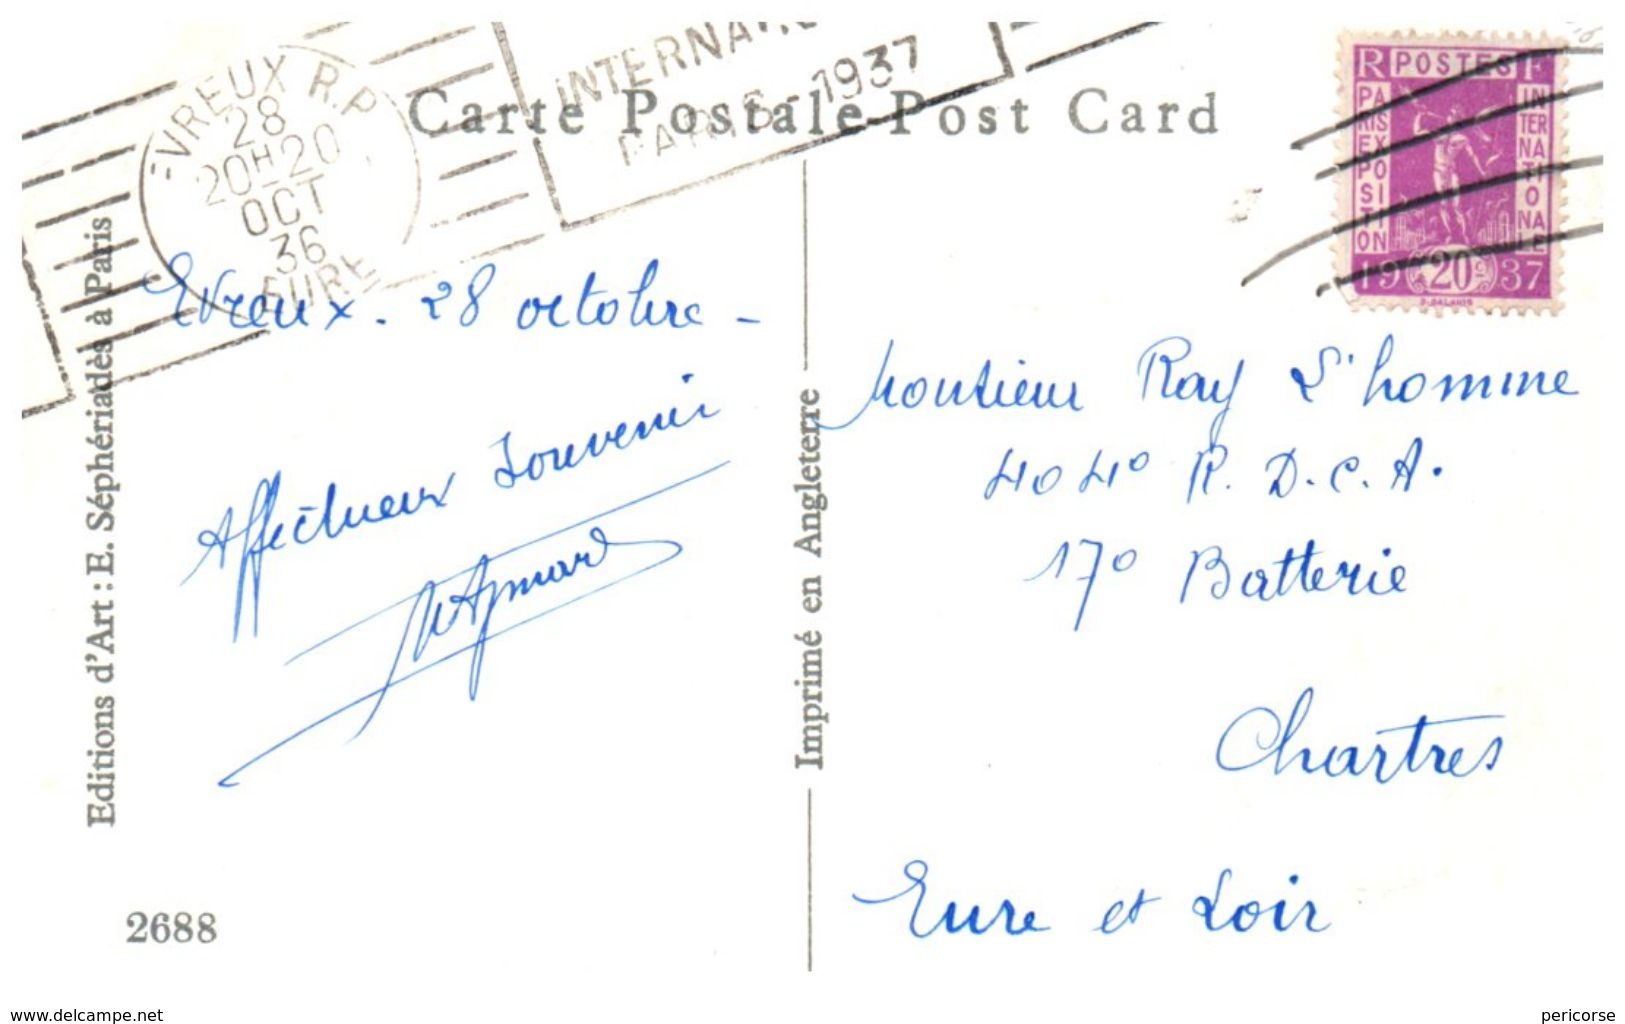 EVREUX R.P.
28
20H20
OCT
36
EURE
INTERNATIO
PARIS-1937
Carte Postale-Post Card
RF POSTES
PARIS EXPOSITION INTERNATIONALE
1937
20c
Evreux - 28 octobre -
Affectueux Souvenir
Monsieur Ray L'homme
404° R.D.C.A.
17° Batterie
Chartres
Eure et Loir
Editions d'Art : E. Séphériadès à Paris
Imprimé en Angleterre
2688
www.delcampe.net
pericorse